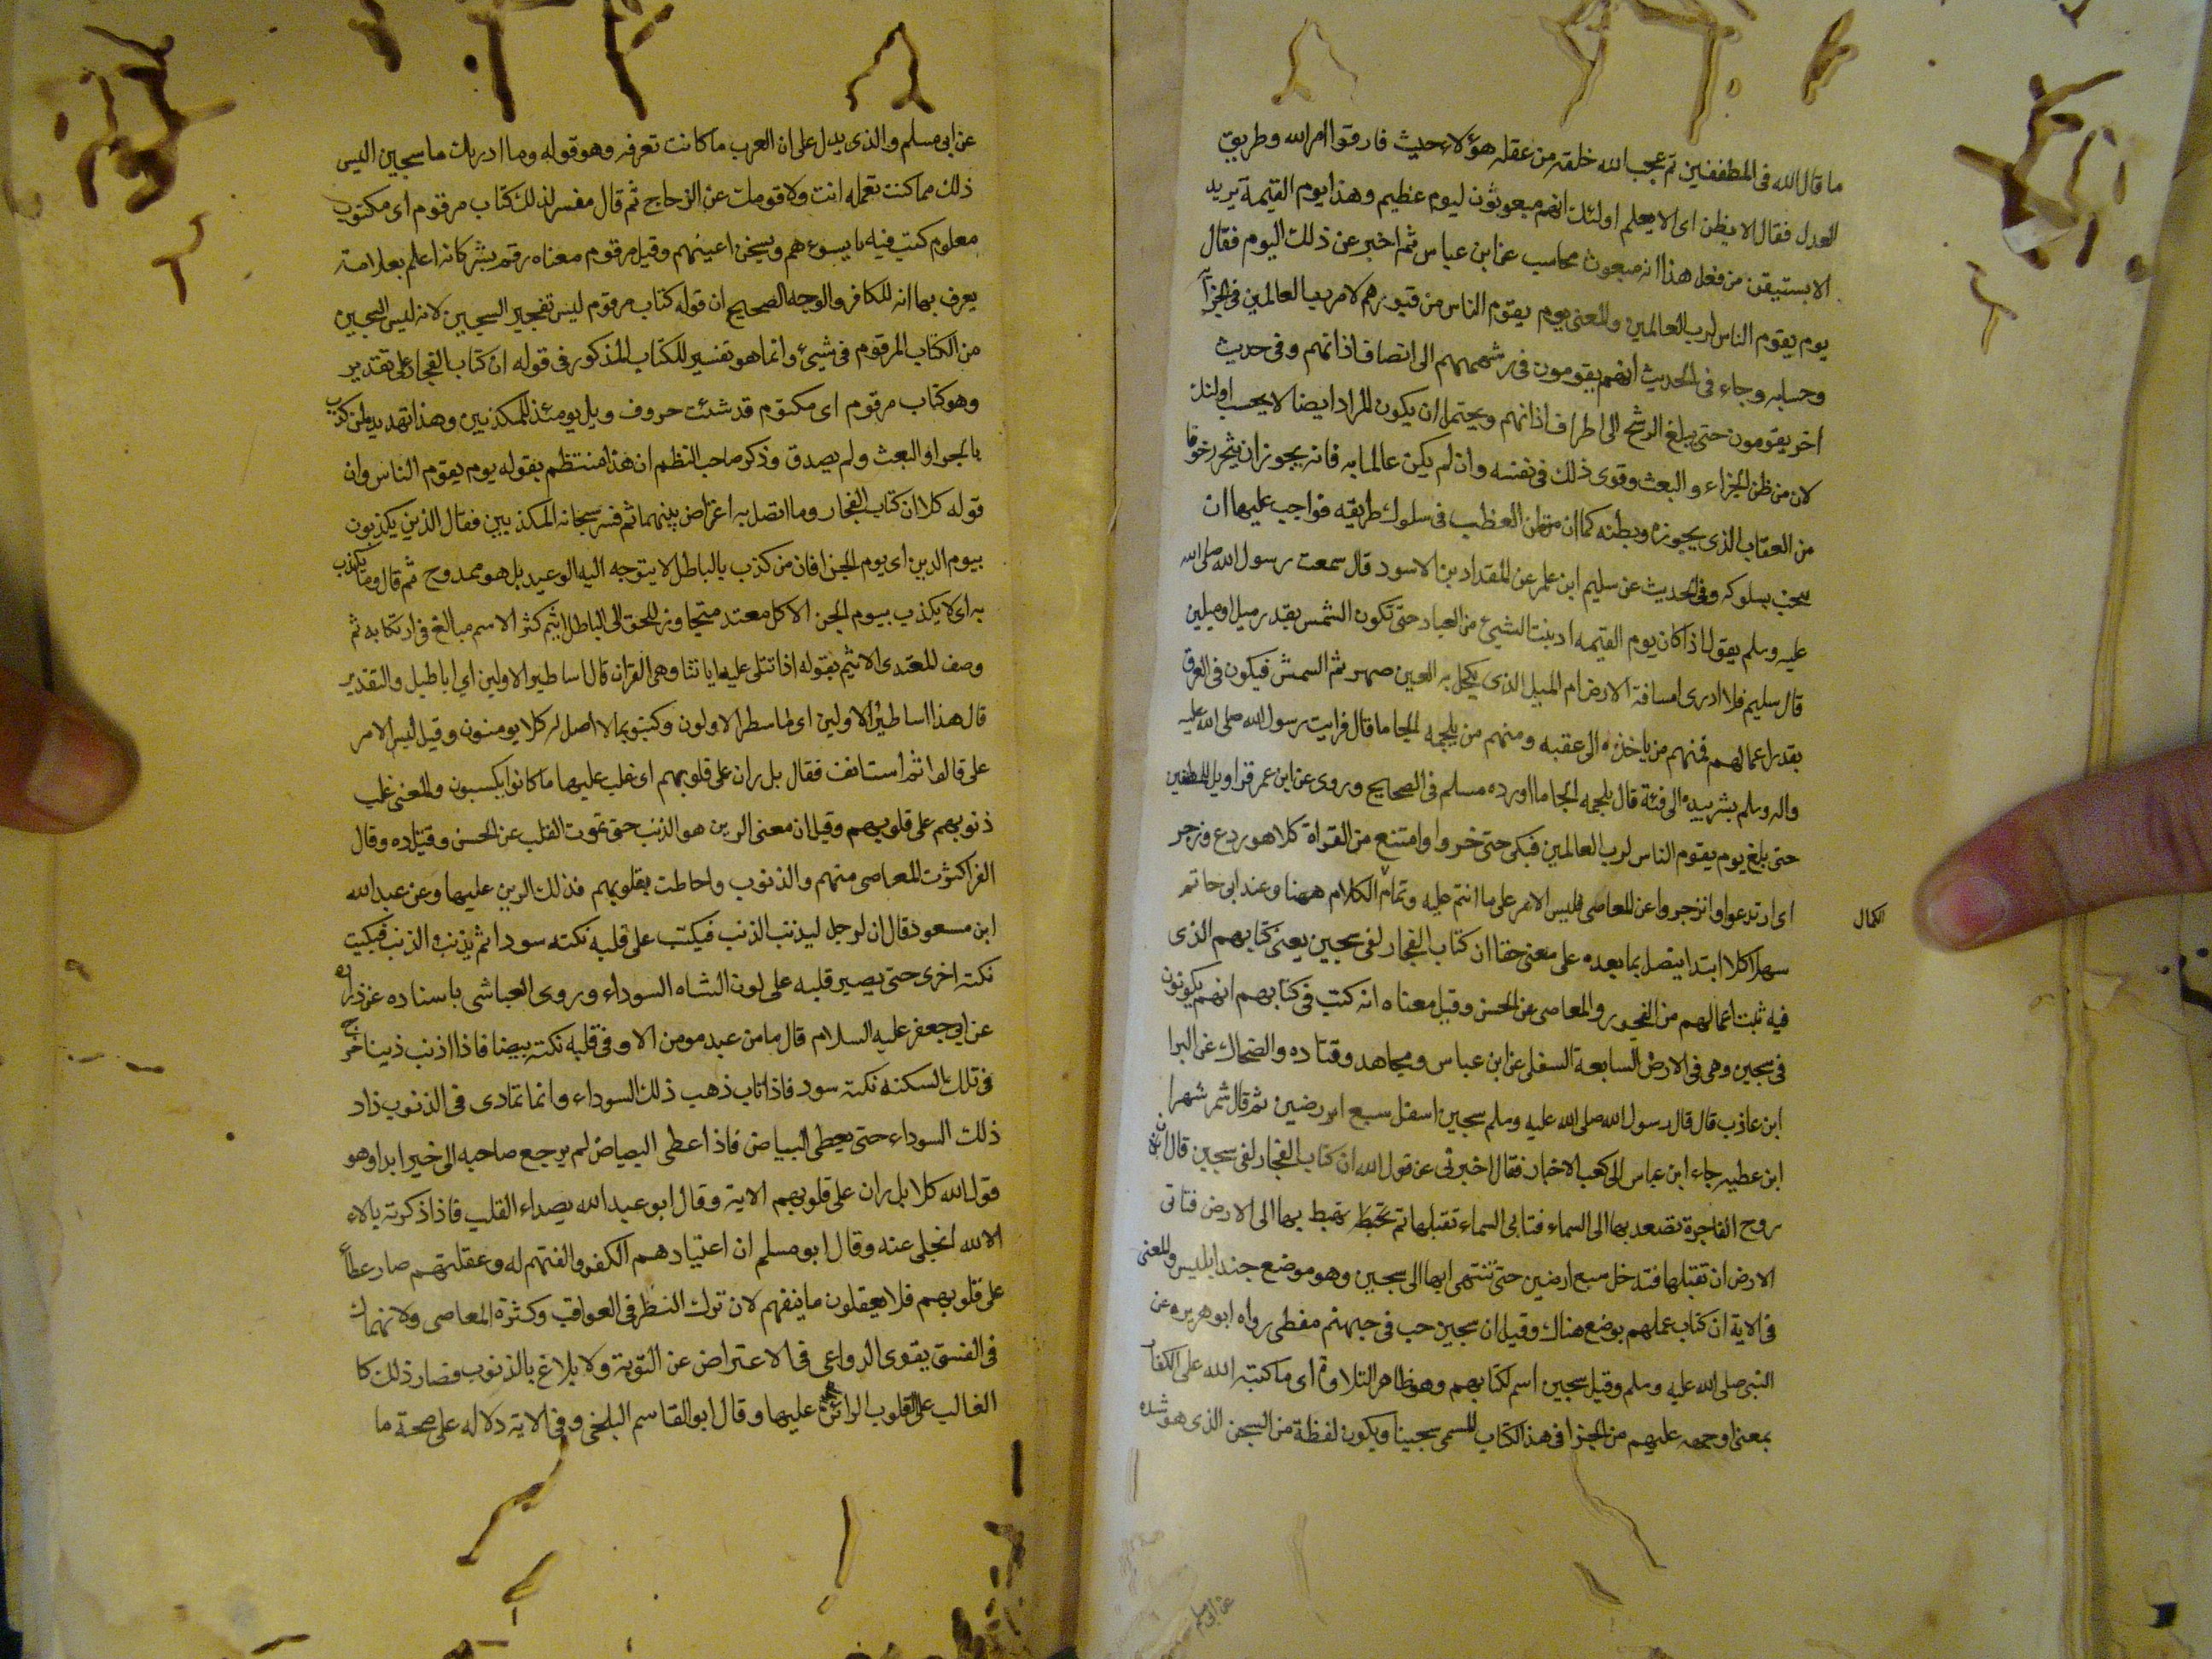 ما قال الله فى المطففين ثم عجب الله خلقه من عقله هؤلاء حيث فارقوا امر الله وطريق
العدل فقال الا يظن اى الا يعلم اولئك انهم مبعوثون ليوم عظيم وهذا يوم القيمة يريد
الا يستيقن من فعل هذا انه مبعوث محاسب عن ابن عباس ثم اخبر عن ذلك اليوم فقال
يوم يقوم الناس لرب العالمين والمعنى يوم يقوم الناس من قبورهم لامر رب العالمين فى الجزائه
وحسابه وجاء فى الحديث انهم يقومون فى رشحهم الى انصاف اذانهم وفى حديث
اخر يقومون حتى يبلغ الرشح الى اطراف اذانهم ويحتمل ان يكون المراد ايضا لا يحسب اولئك
لان من ظن الجزاء والبعث وقوى ذلك فى نفسه وان لم يكن عالما به فانه يجوز ان يتحرز خوفا
من العقاب الذى يجوزه ويظنه كما ان من ظن العطب فى سلوك طريقه فواجب عليها ان
يجنب سلوكه وفى الحديث عن سليم ابن عامر عن المقداد بن الاسود قال سمعت رسول الله صلى الله
عليه وسلم يقول اذا كان يوم القيمه ادينت الشيئ من العباد حتى تكون الشمس بقدر ميل او ميلين
قال سليم فلا ادرى امسافة الارض ام الميل الذى يكحل به العين صهر ثم السمش فيكون فى العرق
بقدر اعمالهم فمنهم من ياخذه الى عقبه ومنهم من يلجمه الجاما قال فرايت رسول الله صلى الله عليه
واله وسلم يشير بيده الى فئة قال يلجمه الجاما اورده مسلم فى الصحايح وروى عن ابن عمر قرا ويل للمطففين
حتى بلغ يوم يقوم الناس لرب العالمين فبكى حتى خروا وامتنع من القراة كلا هو ردع وزجر
اى ارتدعوا وانزجروا عن المعاصى فليس الامر على ما انتم عليه وتمام الكلام ههنا وعند ابى حاتم
الكمال
سهل كلا ابتدا يتصل بما بعده على معنى حقا ان كتاب الفجار لفى سجين يعنى كتابهم الذى
فيه ثبت اعمالهم من الفجور والمعاصى عن الحسن وقيل معناه انه كتب فى كتابهم انهم يكونون
فى سجين وهى فى الارض السابعة السفلى عن ابن عباس ومجاهد وقتاده والضحاك عن البرا
ابن عاذب قال قال رسول الله صلى الله عليه وسلم سجين اسفل سبع ارضين ثم قال شمر شهرا
ابن عطيه جاء ابن عباس الى كعب الاخبار فقال اخبرنى عن قول الله ان كتاب الفجار لفى سجين قال ان
روح الفاجرة تصعد بها الى السماء فتابى السماء تقبلها ثم تحبط يهبط بها الى الارض فتاتى
الارض ان تقبلها فتدخل سبع ارضين حتى تنتهى ابها الى سجين وهو موضع جند ابليس والمعنى
فى الاية ان كتاب عملهم يوضع هناك وقيل ان سجين حب فى جهنم مغطى رواه ابو هريره عن
النبى صلى الله عليه وسلم وقيل سجين اسم لكتابهم وهو ظاهر التلاوة اى ما كتبه الله على الكفار
بمعنى اوجبه عليهم من الجزا فى هذا الكتاب المسمى سجينا ويكون لفظة من السجن الذى هو شده
عن ابى مسلم
عن ابى مسلم والذى يدل على ان العرب ما كانت تعرفه وهو قوله وما ادريك ما سجين اليس
ذلك مما كنت تعمله انت ولا قومك عن الزجاج ثم قال مفسرا لذلك كتاب مرقوم اى مكتوب
معلوم كتب فيه ما يسوءهم ويسخن اعينهم وقيل مرقوم معناه رقم بشر كانه اعلم بعلامة
يعرف بها انه للكافر والوجه الصحيح ان قوله كتاب مرقوم ليس تفجير السجين لانه ليس السجين
من الكتاب المرقوم فى شيئ وانما هو تفسير للكتاب المذكور فى قوله ان كتاب الفجار على تقدير
وهو كتاب مرقوم اى مكتوم قد شئت حروف ويل يومئذ للمكذبين وهذا تهديد لمن كذب
بالجزا والبعث ولم يصدق وذكر صاحب النظم ان هذا منتظم بقوله يوم يقوم الناس وان
قوله كلا ان كتاب الفجار وما اتصل به اعتراض بينهما ثم فسر سبحانه المكذبين فقال الذين يكذبون
بيوم الدين اى يوم الجزا فان من كذب بالباطل لا يتوجه اليه الوعيد بل هو ممدوح ثم قال وما يكذب
به اى لا يكذب بيوم الجزا الا كل معتد متجاوز للحق الى الباطل اثيم كثر الاسم مبالغ فى ارتكابه ثم
وصف المعتدى الاثيم بقوله اذا تتلى عليه اياتنا وهى القران قال اساطير الاولين اى اباطيل والتقدير
قال هذا اساطير الاولين اى ما سطر الاولون وكتبو بما لا اصل له كلا يومنون وقيل ليس الامر
على قالوا ثم استانف فقال بل ران على قلوبهم اى غلب عليها ما كانوا يكسبون والمعنى غلب
ذنوبهم على قلوبهم وقيل ان معنى الرين هو الذنب حتى تموت القلب عن الحسن وقتاده وقال
الفرا كثرت المعاصى منهم والذنوب واحاطت بقلوبهم فذلك الرين عليها وعن عبد الله
ابن مسعود قال ان لرجل ليذنب الذنب فيكتب على قلبه نكته سودا ثم يذنب الذنب فيكيت
نكته اخرى حتى يصير قلبه على لون الشاه السوداء وروى العياشى باسناده عن زراره
عن ابى جعفر عليه السلام قال ما من عبد مومن الا وفى قلبه نكته بيضا فاذا اذنب ذينا خرج
فى تلك السكنه نكته سود فاذا تاب ذهب ذلك السوداء وانما تمادى فى الذنوب ذاد
ذلك السوداء حتى يعطى البياض فاذا عطى البياض لم يرجع صاحبه الى خير ابدا وهو
قول الله كلا بل ران على قلوبهم الاية وقال ابو عبد الله يصداء القلب فاذا ذكرته بالاء
الا الله انجلى عنه وقال ابو مسلم ان اعتيادهم الكفر والفتهم له وعقلتهم صار عطاً
على قلوبهم فلا يعقلون ما ينفهم لان ترك النظر فى العواقب وكثرة المعاصى ولانهماك
فى الفسق يقوى الدواعى فى الاعتراض عن التوبة ولا بلاغ بالذنوب فصار ذلك كا
الغالب على القلوب الرائن عليها وقال ابو القاسم البلخى وفى الاية دلاله على صحة ما